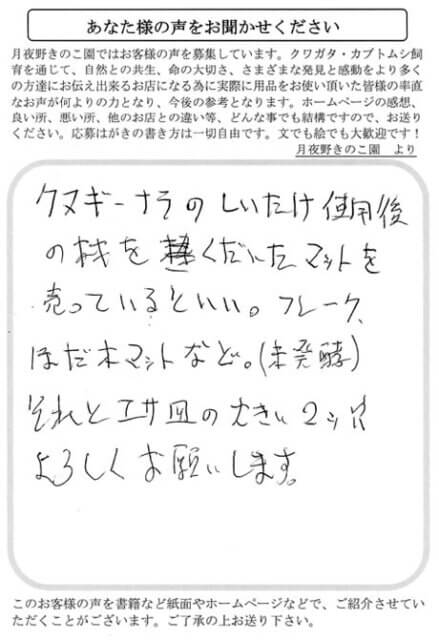 あなた様の声をお聞かせください
月夜野きのこ園ではお客様の声を募集しています。クワガタ・カブトムシ飼
育を通じて、自然との共生、命の大切さ、さまざまな発見と感動をより多く
の方達にお伝え出来るお店になる為に実際に用品をお使い頂いた皆様の率直
なお声が何よりの力となり、今後の参考となります。ホームページの感想、
良い所、悪い所、他のお店との違い等、どんな事でも結構ですので、お送り
ください。応募はがきの書き方は一切自由です。文でも絵でも大歓迎です！
月夜野きのこ園　より
クヌギーナラのしいたけ使用後
の材をくだいたマットを
売っているといい。フレーク、
ほだ木マットなど。(未発酵)
それとエサ皿の大きい2つ!!
よろしくお願いします。
このお客様の声を書籍など紙面やホームページなどで、ご紹介させてい
ただくことがございます。ご了承の上お送り下さい。